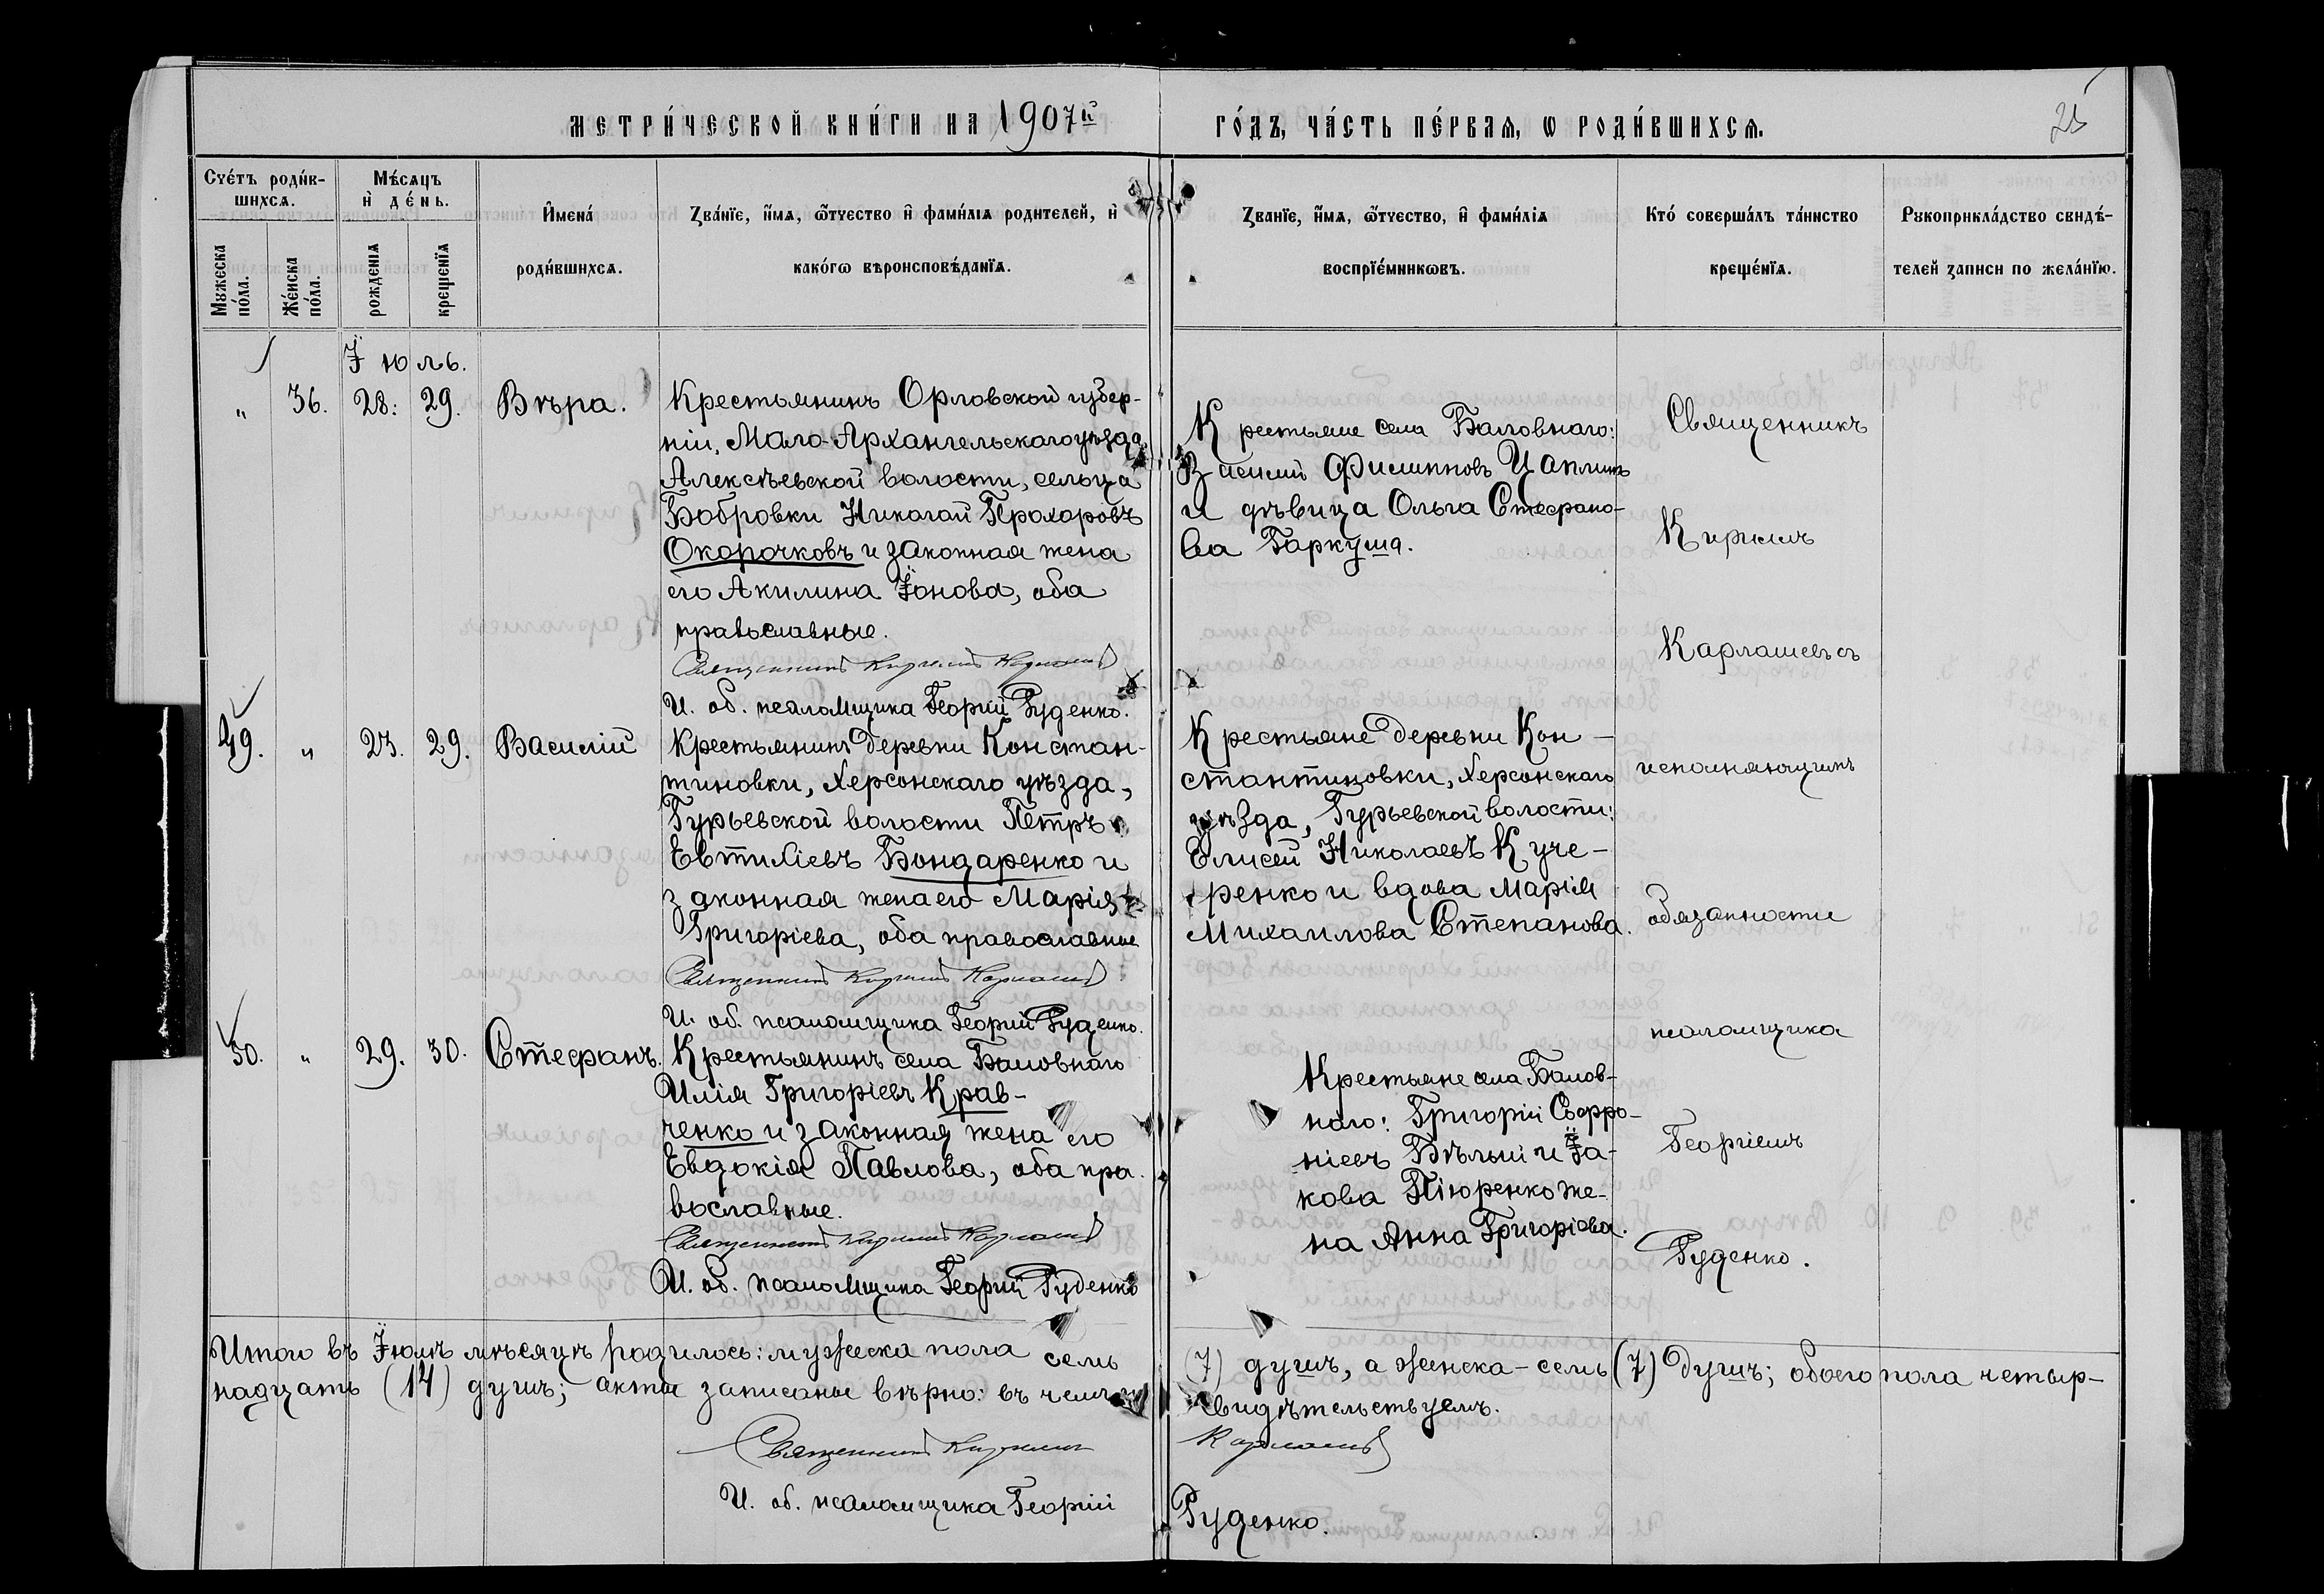 МЕТРИ́ЧЕСКОЙ КНИ́ГИ НА 1907й
ГО́ДЪ, ЧА́СТЬ ПЕ́РВАѦ, Ѡ РОДИ́ВШИХСѦ.
25
Сче́тъ роди́в-
шихсѧ.
Мꙋжеска
по́ла.
Же́нска
по́ла.
Мѣ́сѧцъ
и҆ де́нь.
рожденїѧ
крещенїѧ
И҆мена́
роди́вшихсѧ.
Зва́нїе, и҆́мѧ, ѻ҆́тчество и҆ фами́лїѧ родителей, и҆
како́гѡ вѣроисповѣ́данїѧ.
Званїе, и҆́мѧ, ѻ҆́тчество, и҆ фами́лїѧ
воспрїе́мникѡвъ.
Кто́ соверша́лъ та́инство
креще́нїѧ.
Рꙋкоприкла́дство свидѣ́-
телей записи по жела́нїю.
Їюль.
„ 36. 28. 29. Вѣра.
Крестьянинъ Орловской губер-
ніи, Мало-Архангельскаго уѣзда,
Алексѣевской волости, сельца
Бобровки Николай Прохоровъ
Окорочковъ и законная жена
его Акилина Їонова, оба
православные.
Священникъ Кириллъ Карлашевъ
И. об. псаломщика Георгій Руденко.
Крестьяне села Баловнаго:
Василій Филипповъ Цаплинъ
и дѣвица Ольга Стефано-
ва Гаркуша.
Священникъ
Кириллъ
Карлашевъ съ
исполняющимъ
обязанности
псаломщика
Георгіемъ
Руденко.
49. „ 23. 29. Василій
Крестьянинъ деревни Констан-
тиновки, Херсонскаго уѣзда,
Гурьевской волости Петръ
Евтихіевъ Бондаренко и
законная жена его Марія
Григоріева, оба православные
Священникъ Кириллъ Карлашевъ
И. об. псаломщика Георгій Руденко.
Крестьяне деревни Кон-
стантиновки, Херсонскаго
уѣзда, Гурьевской волости:
Елисей Николаевъ Куче-
ренко и вдова Марія
Михаилова Степанова.
50. „ 29. 30. Стефанъ.
Крестьянинъ села Баловнаго
Илія Григоріевъ Крав-
ченко и законная жена его
Евдокія Павлова, оба пра-
вославные.
Священникъ Кириллъ Карлашевъ
И. об. псаломщика Георгій Руденко
Крестьяне села Балов-
наго: Григорій Софро-
ніевъ Бѣлый и Їа-
кова Піюренко же-
на Анна Григоріева.
Итого въ Їюлѣ мѣсяцѣ родилось: мужеска пола семь (7) душъ, а женска - семь (7) душъ; обоего пола четыр-
надцать (14) душъ; акты записаны вѣрно: въ чемъ и свидѣтельствуемъ.
Священникъ Кириллъ Карлашевъ
И. об. псаломщика Георгій Руденко.